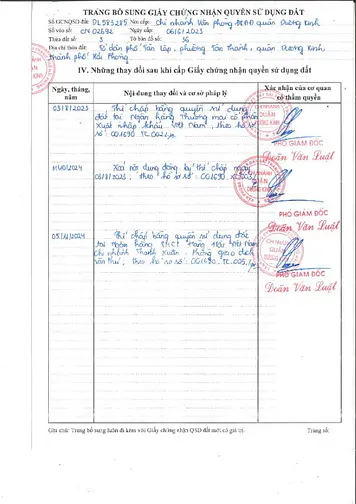 TRANG BỔ SUNG GIẤY CHỨNG NHẬN QUYỀN SỬ DỤNG ĐẤT
Số GCNQSD đất: DL585285 Nơi cấp: Chi nhánh Văn phòng ĐKĐĐ quận Dương Kinh
Số vào sổ: CN 02692 Cấp ngày: 06/6/2023
Thửa đất số: 3 Tờ bản đồ số: 36
Địa chỉ thửa đất: Tổ dân phố Tân Lập, phường Tân Thành, quận Dương Kinh,
thành phố Hải Phòng
IV. Những thay đổi sau khi cấp Giấy chứng nhận quyền sử dụng đất
Ngày, tháng, năm
Nội dung thay đổi và cơ sở pháp lý
Xác nhận của cơ quan có thẩm quyền
Thế chấp bằng quyền sử dụng
đất tại Ngân hàng Thương mại cổ phần
Xuất nhập khẩu Việt Nam, theo hồ sơ
số: 001690.TC.002
PHÓ GIÁM ĐỐC
Doãn Văn Luật
Xoá nội dung đăng ký thế chấp ngày
theo hồ sơ số: 001690
PHÓ GIÁM ĐỐC
Doãn Văn Luật
Thế chấp bằng quyền sử dụng đất
tại Ngân hàng TMCP Hàng Hải Việt Nam
Chi nhánh Thanh Xuân - Phòng giao dịch
theo hồ sơ số: 001690.TC.005
PHÓ GIÁM ĐỐC
Doãn Văn Luật
Ghi chú: Trang bổ sung luôn đi kèm với Giấy chứng nhận QSD đất mới có giá trị. Trang số: